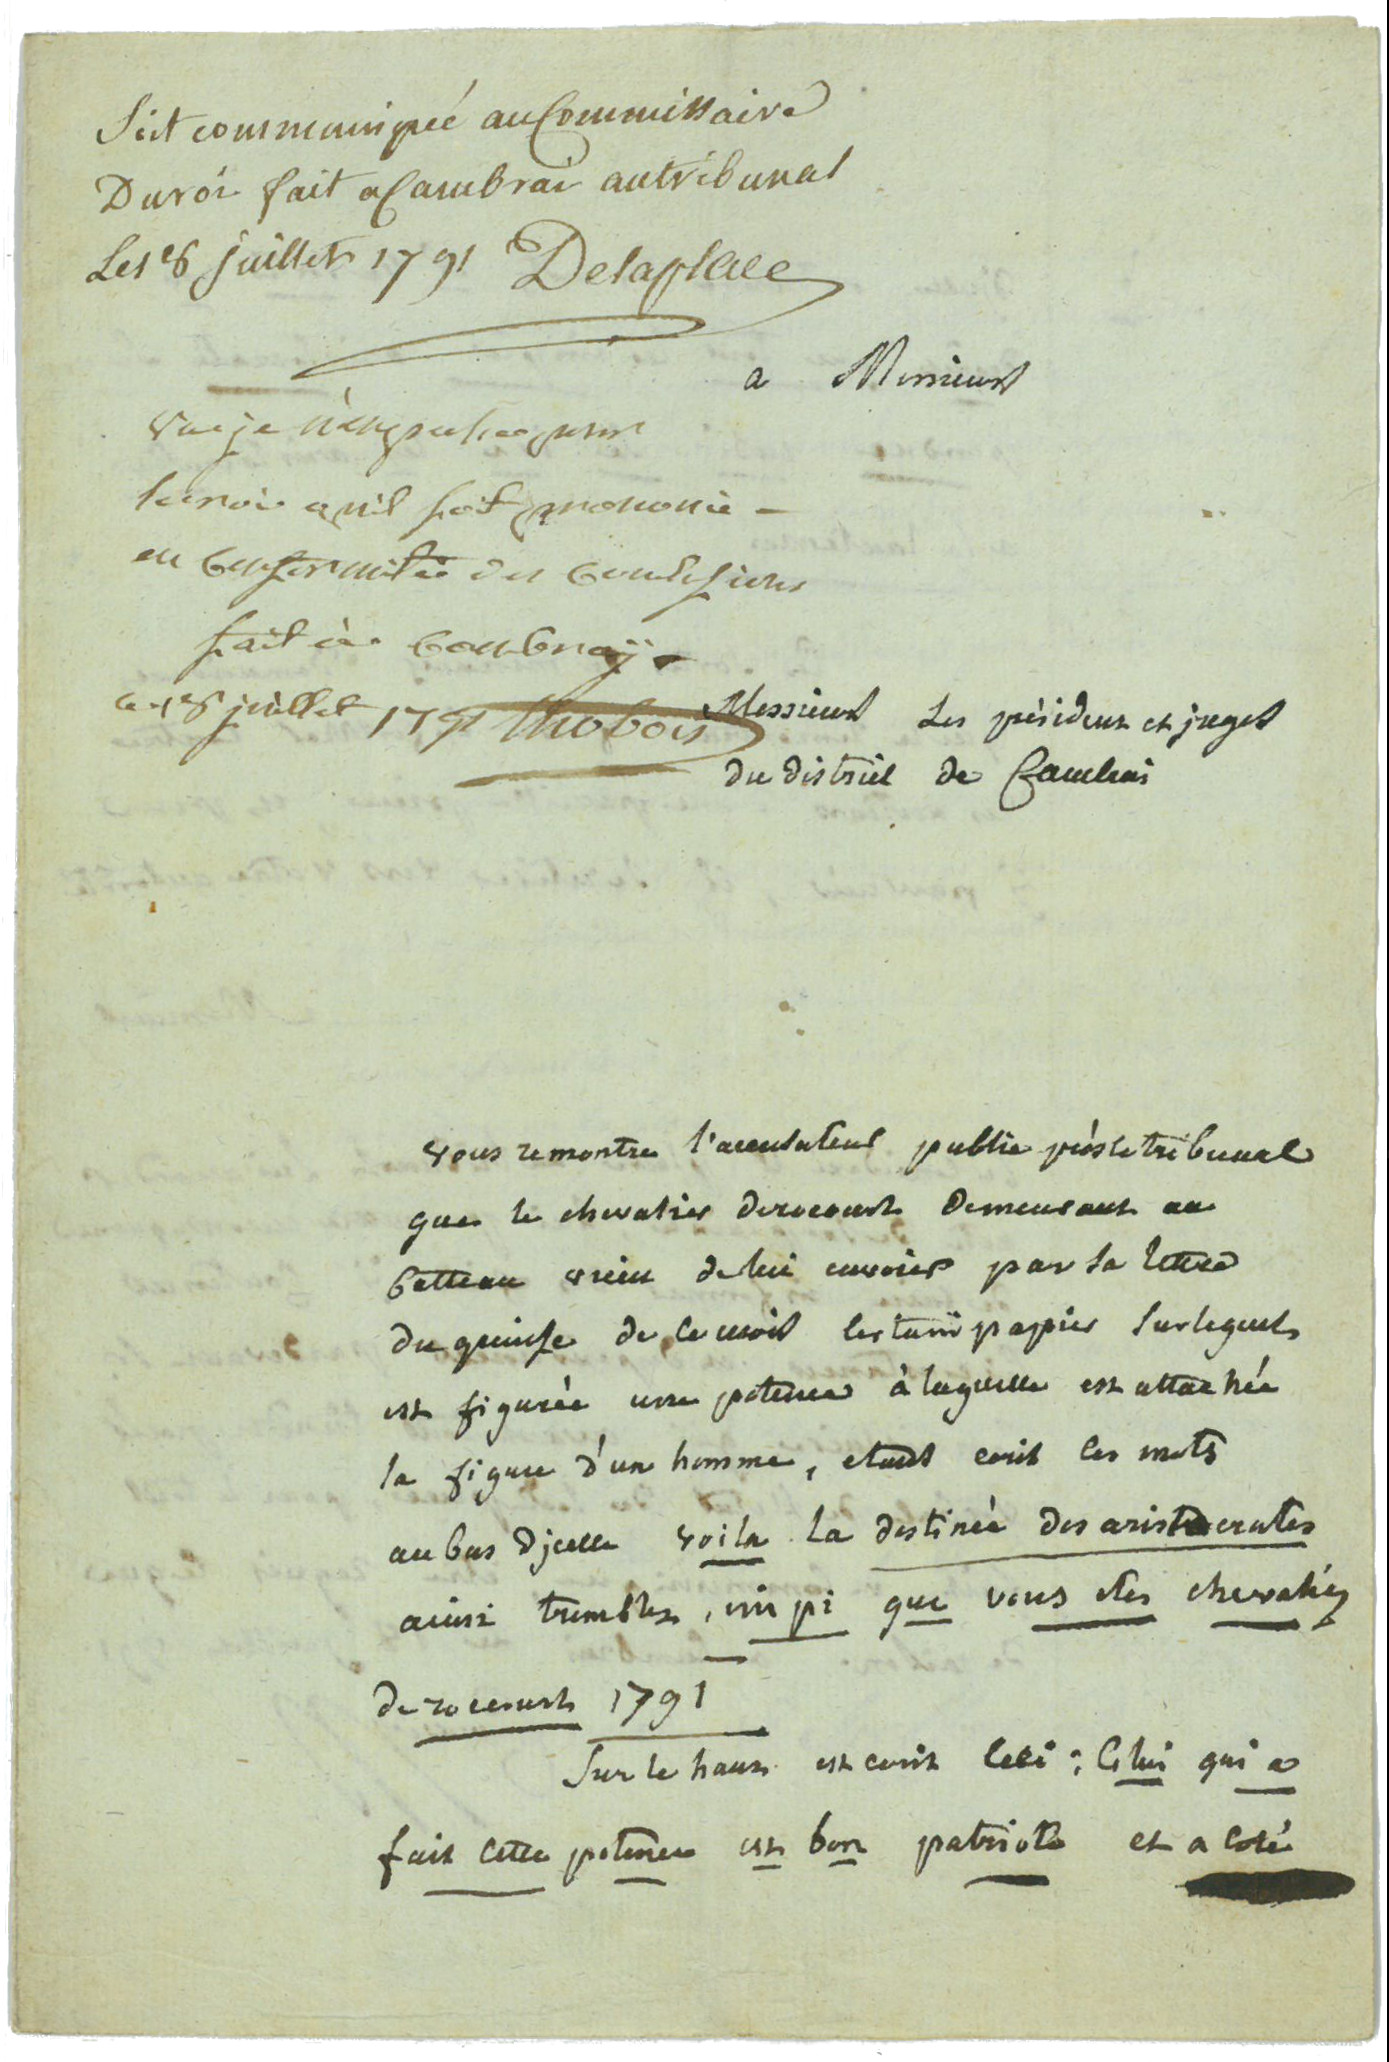 Soit communiqué au Commissaire
Du roi fait a Cambrai au tribunal
Le 18 juillet 1791 Delaplace
a Messieurs
vue je n'empeche pour
le roi qu'il soit prononcé
en Conformité des Conclusions
fait à Cambray
ce 18 juillet 1791 Thobois
Messieurs Les président et juges
du district de Cambrai
vous remontre l'accusateur public près le tribunal
que le chevalier derocourt demeurant au
catteau vient de lui envoier par sa lettre
du quinse de ce mois certain papier sur lequel
est figurée une potence à laquelle est attachée
la figure d'un homme, etant ecrit ces mots
au bas d'jcelle voila la destinée des aristocrates
ainsi tremblez, impi que vous etes chevalier
de rocourt 1791
Sur le haut est ecrit ceci : Celui qui a
fait cette potence est bon patriote et a coté